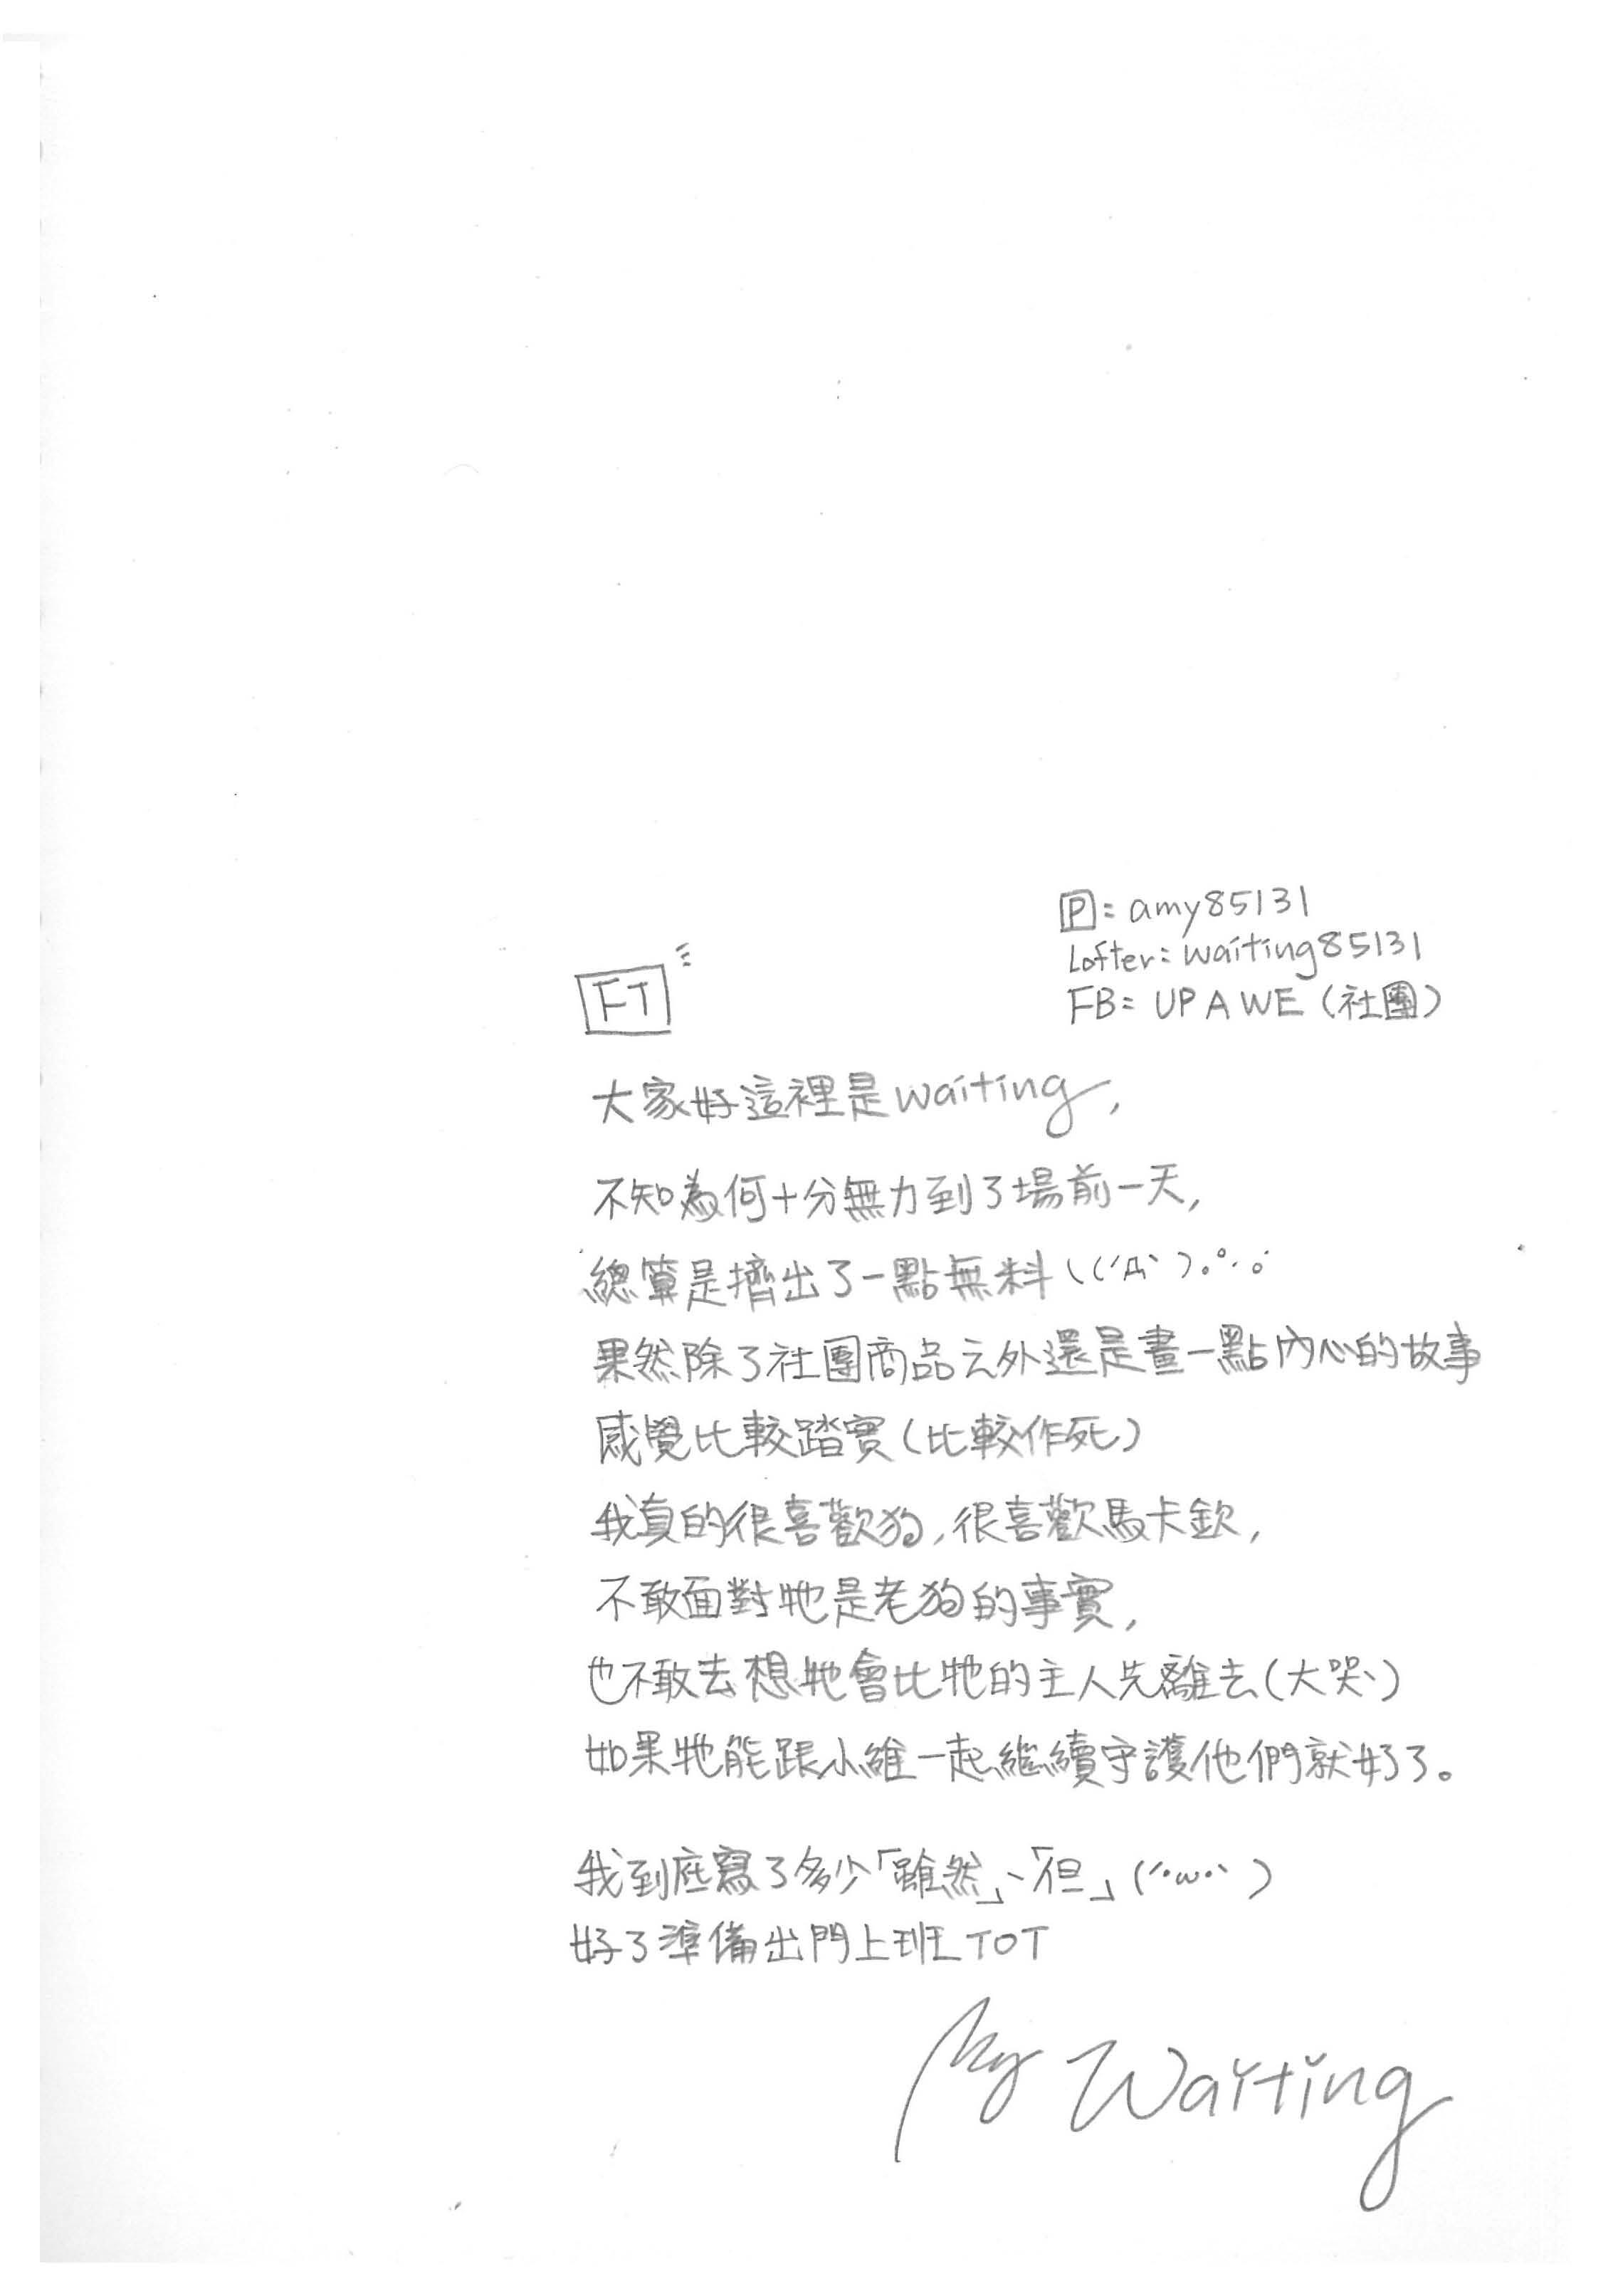 P: amy85131
Lofter: waiting85131
FB: UPAWE (社團)
FT
大家好這裡是waiting,
不知為何十分無力到了場前一天,
總算是擠出了一點無料 \(('Д`)。°·。
果然除了社團商品之外還是畫一點內心的故事
感覺比較踏實(比較作死)
我真的很喜歡狗,很喜歡馬卡欽,
不敢面對牠是老狗的事實,
也不敢去想牠會比牠的主人先離去(大哭)
如果牠能跟小維一起繼續守護他們就好了。
我到底寫了多少「雖然」、「但」(´·ω·`)
好了準備出門上班TOT
By Waiting